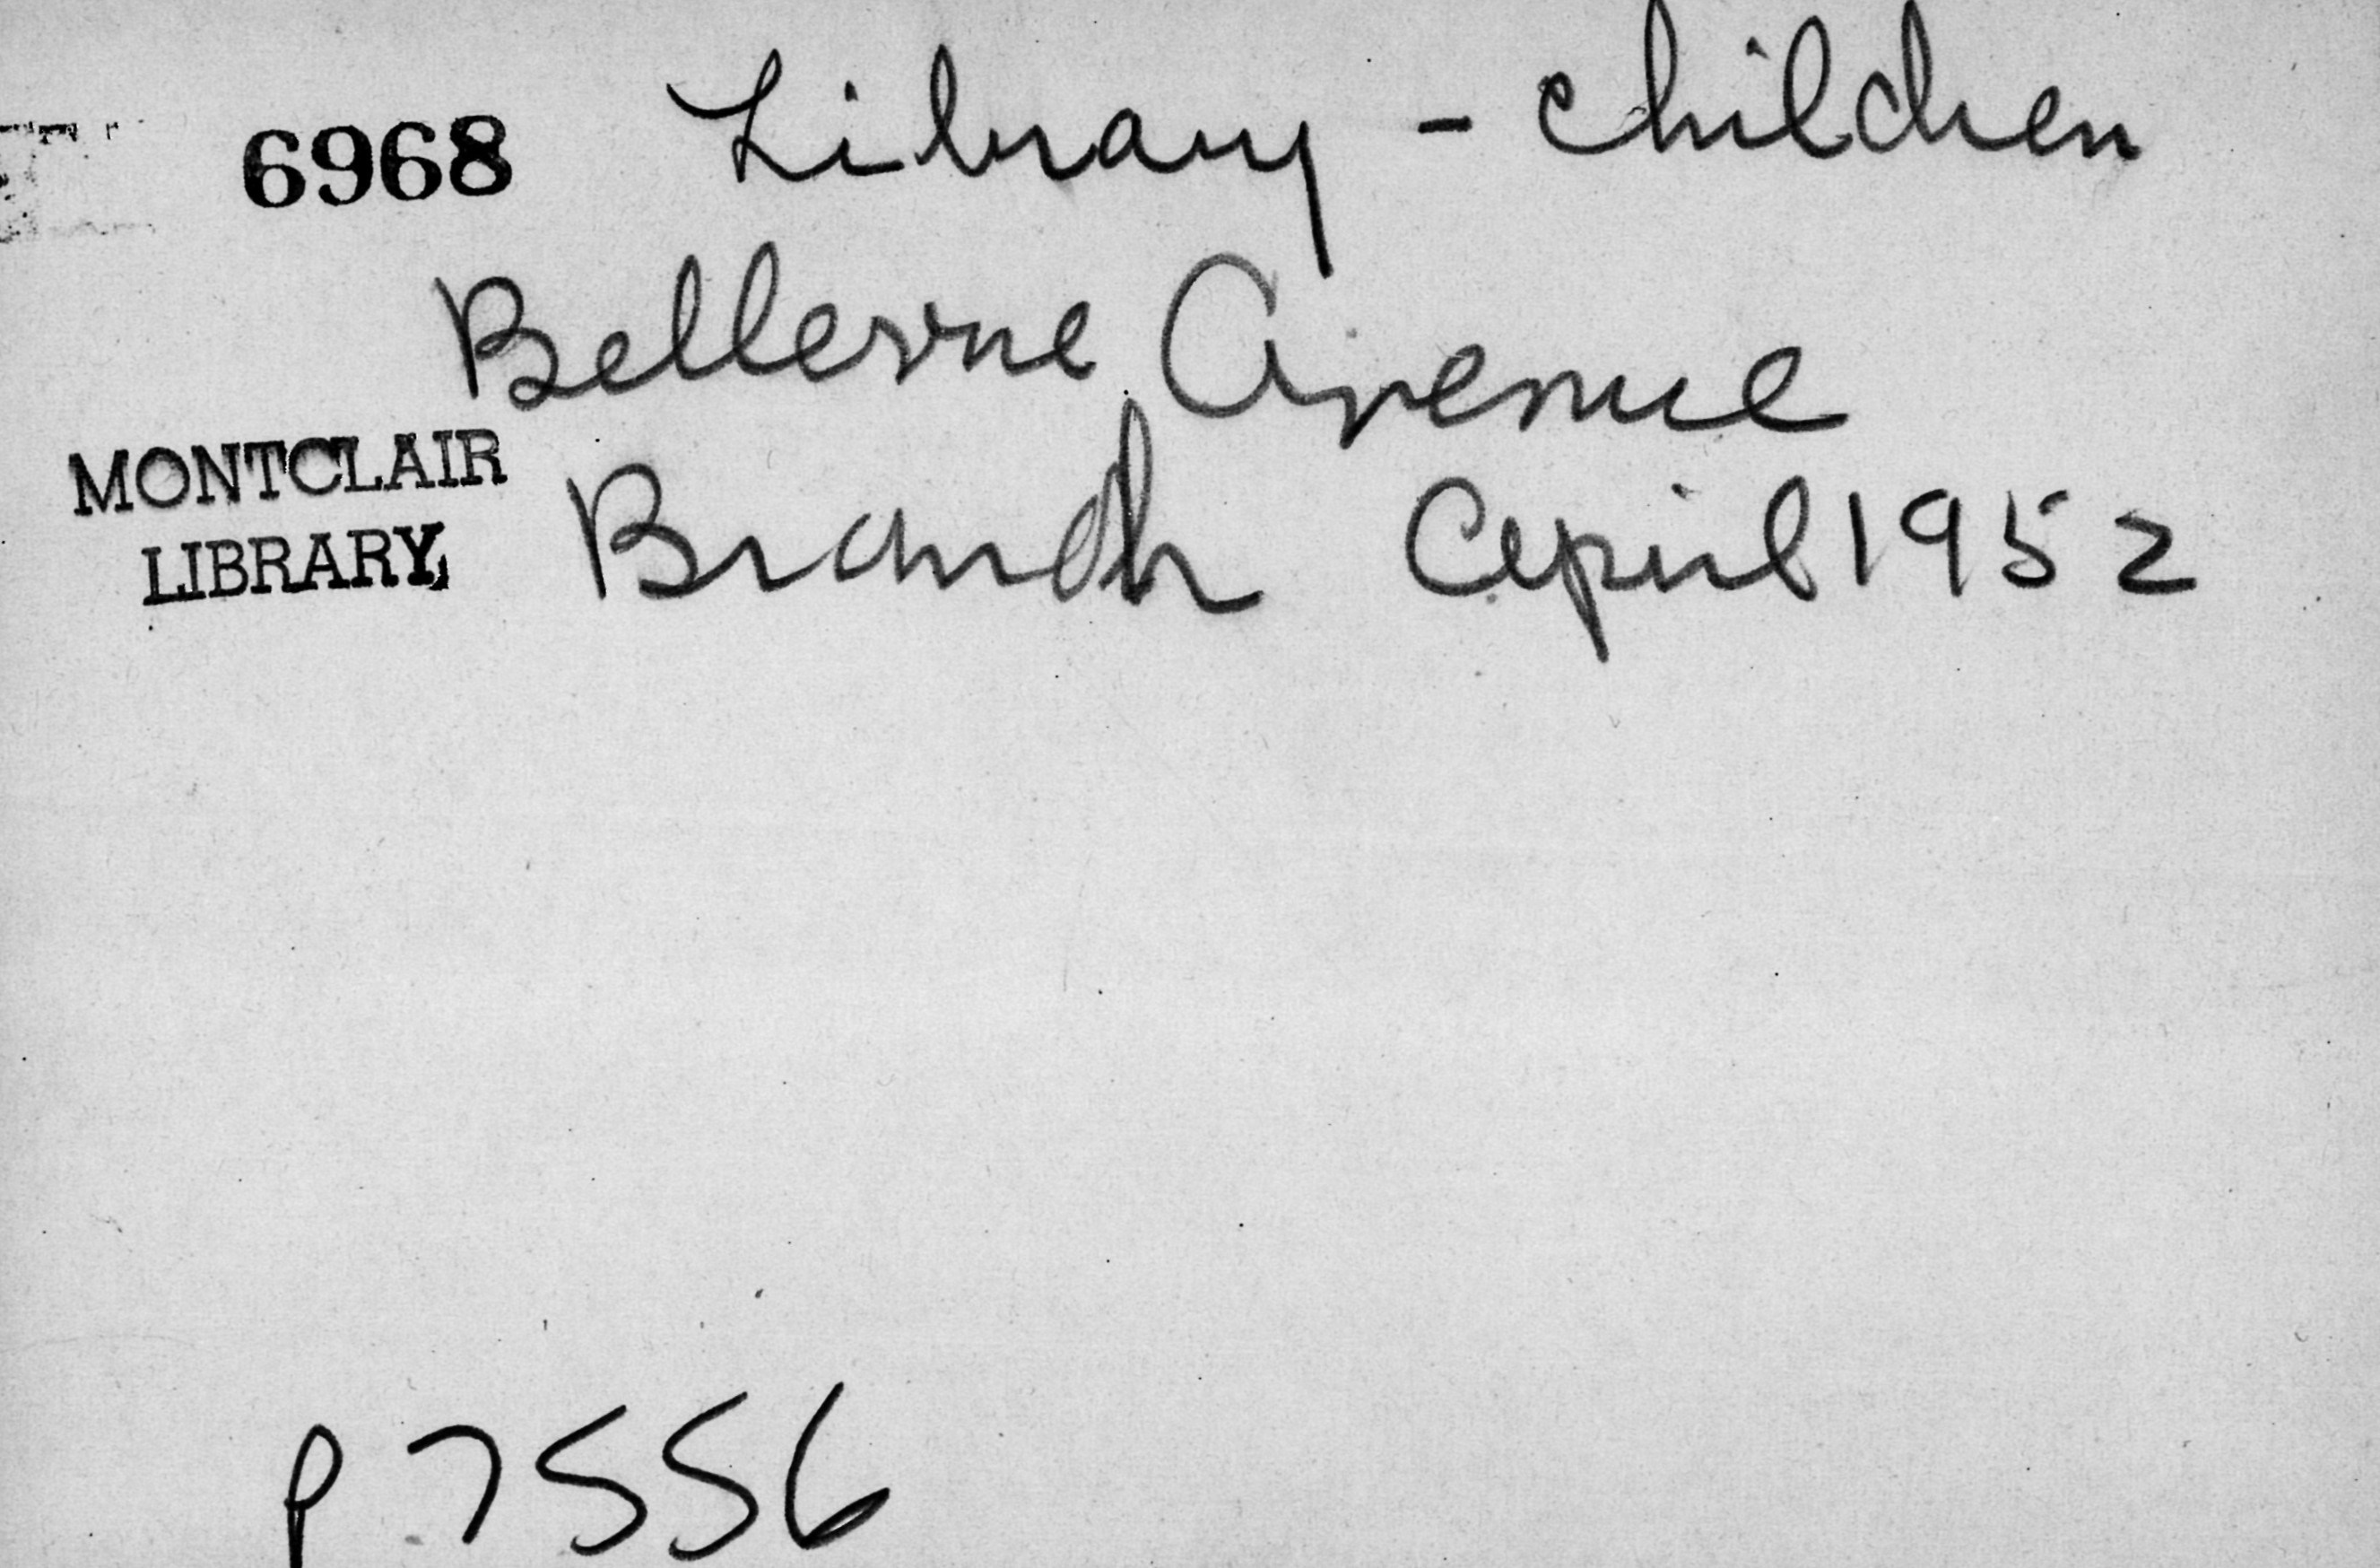 6968 Library - children
Bellevue Avenue
MONTCLAIR
LIBRARY
Branch April 1952
p 7556